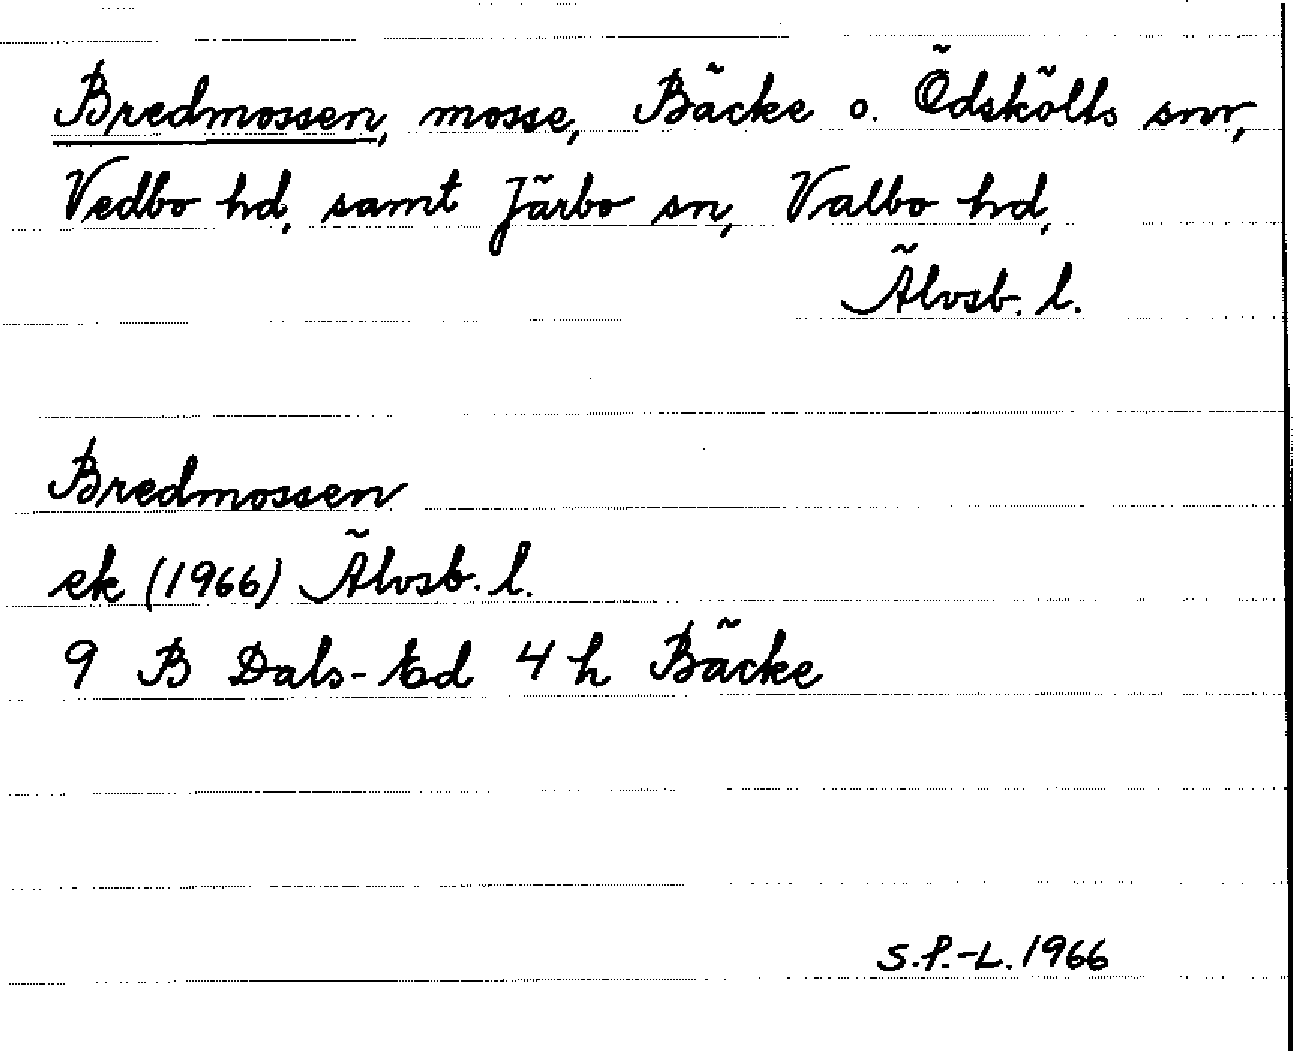 Bredmossen, mosse, Bäcke o. Ödskölts snr,
Vedbo hd, samt Järbo sn, Valbo hd,
Älvsb. l.
Bredmossen
ek (1966) Älvsb. l.
9 B Dals-Ed 4 h Bäcke
S.P.-L. 1966